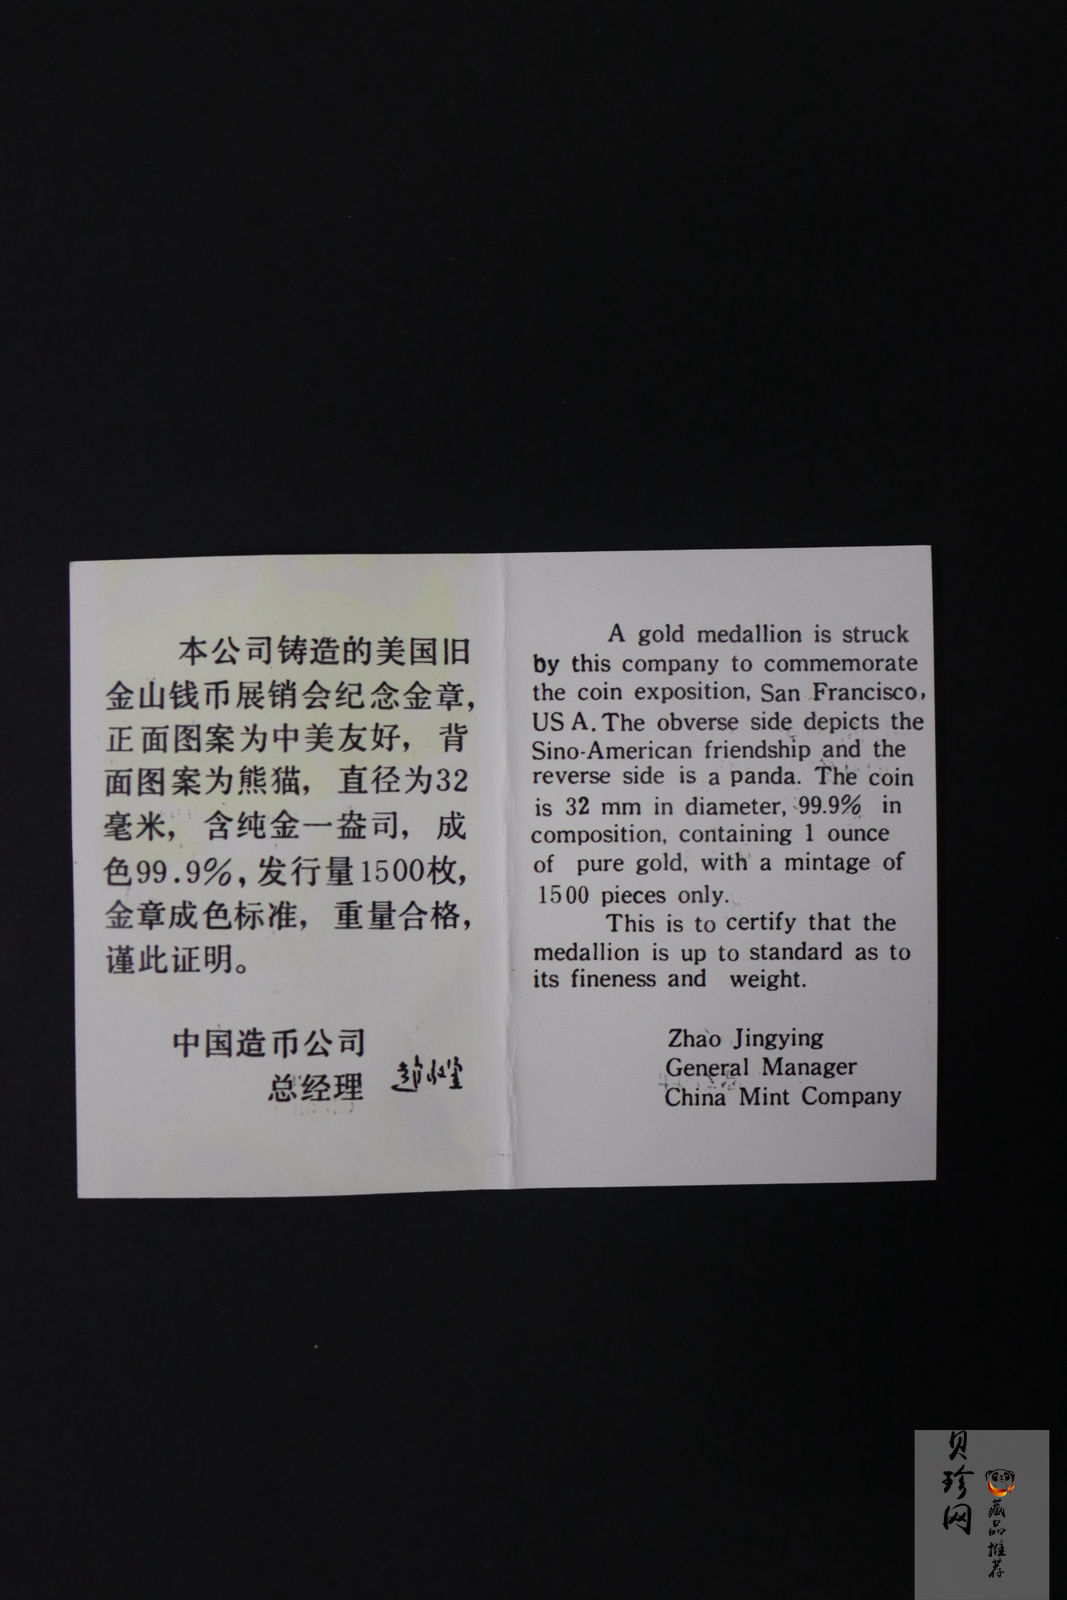 本公司铸造的美国旧
金山钱币展销会纪念金章，
正面图案为中美友好，背
面图案为熊猫，直径为32
毫米，含纯金一盎司，成
色99.9%，发行量1500枚，
金章成色标准，重量合格，
谨此证明。
中国造币公司
总经理
A gold medallion is struck
by this company to commemorate
the coin exposition, San Francisco,
US A. The obverse side depicts the
Sino-American friendship and the
reverse side is a panda. The coin
is 32 mm in diameter, 99.9% in
composition, containing 1 ounce
of pure gold, with a mintage of
1500 pieces only.
This is to certify that the
medallion is up to standard as to
its fineness and weight.
Zhao Jingying
General Manager
China Mint Company
贝珍网
藏品推荐